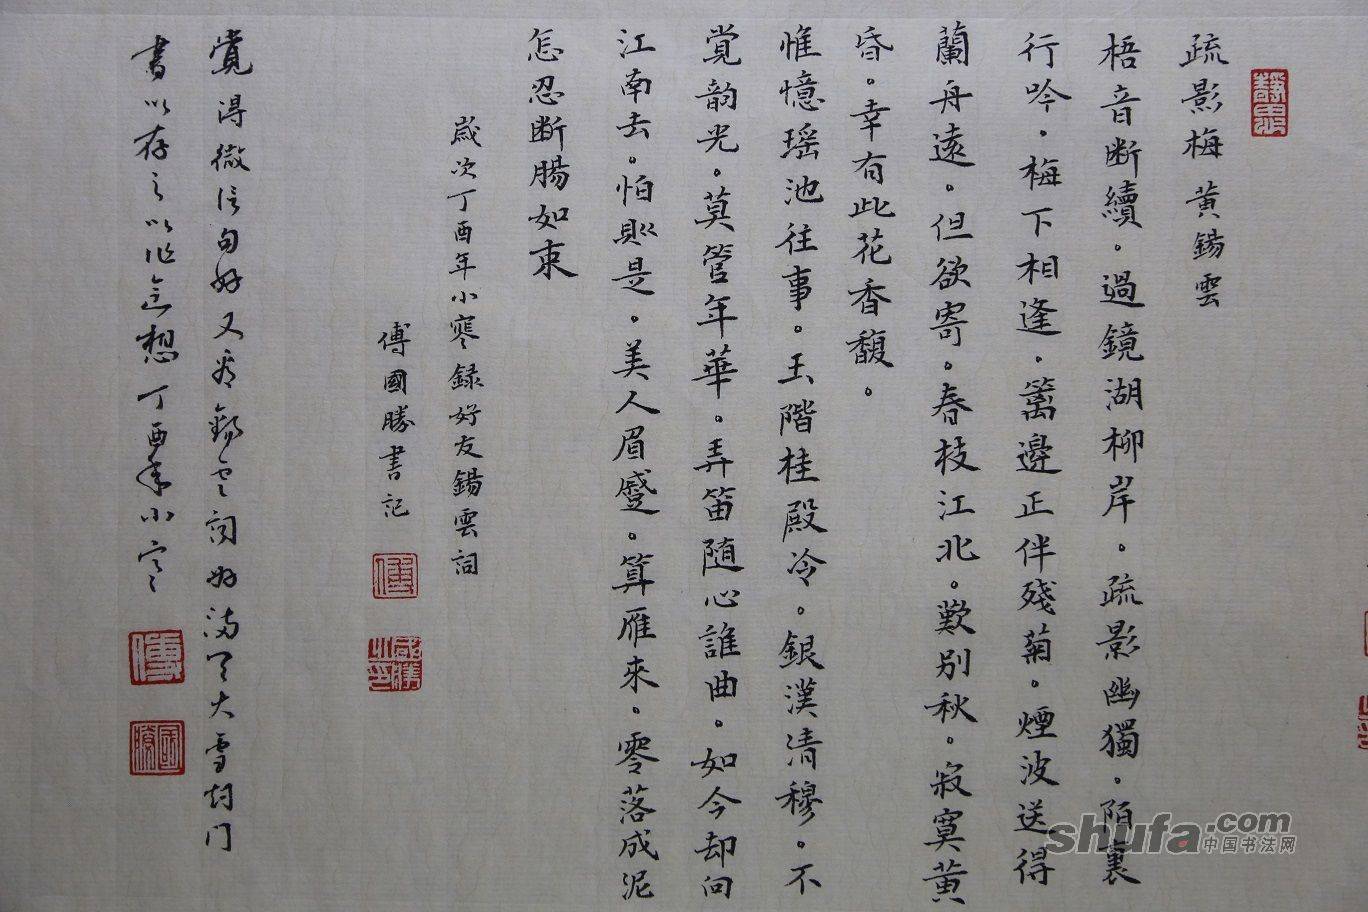 疏影梅 黄錫雲
梧音断續。過鏡湖柳岸。疏影幽獨。陌裏
行吟。梅下相逢。籬邊正伴殘菊。煙波送得
蘭舟遠。但欲寄。春枝江北。歎别秋。寂寞黄
昏。幸有此花香馥。
惟憶瑶池往事。玉階桂殿冷。銀漢清穆。不
覚韵光。莫管年華。弄笛随心誰曲。如今却问
江南去。怕是。美人眉蹙。算雁來。零落成泥
怎忍断腸如束
歲次丁酉年小寒録好友錫雲詞
傅國勝書記
覺得微信句好又看錫雲詞好满天大雪封门
書以存之以作念想丁酉年小寒
shufa.com
中国书法网